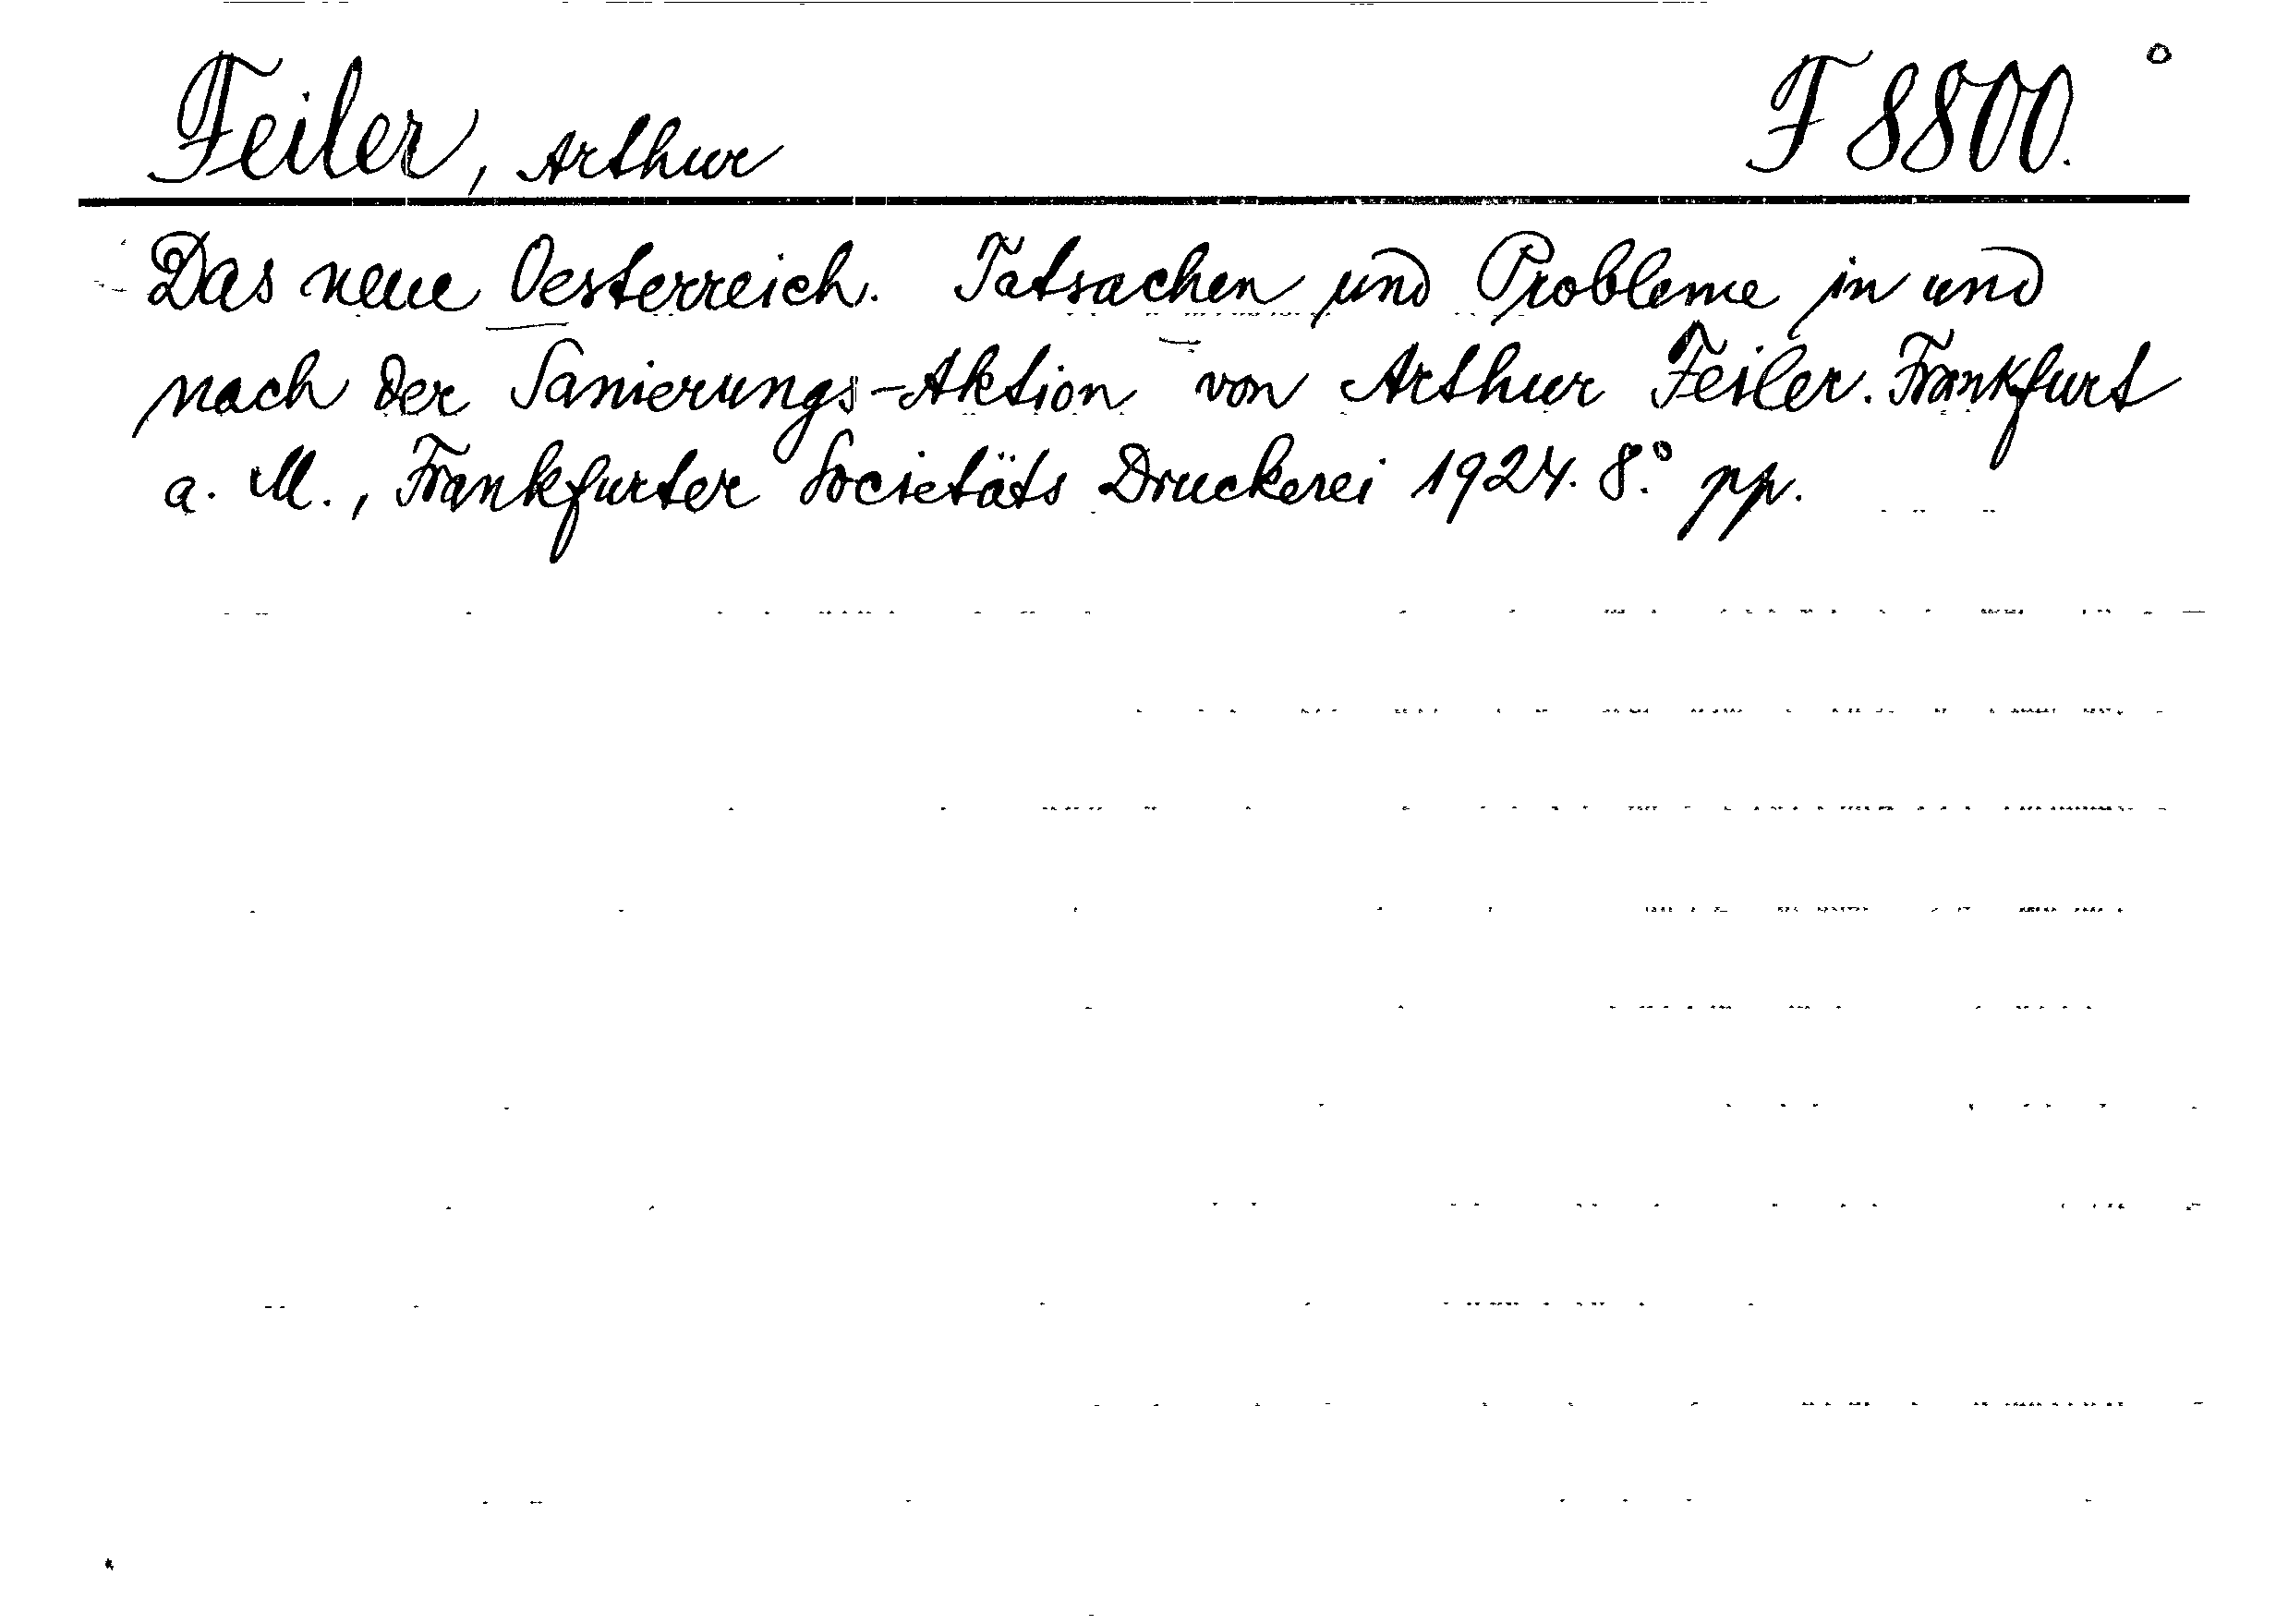 Feiler, Arthur F 8800.
Das neue Oesterreich. Tatsachen und Probleme in und
nach der Sanierungs-Aktion von Arthur Feiler. Frankfurt
a. M., Frankfurter Societäts Druckerei 1924. 8.° pp.